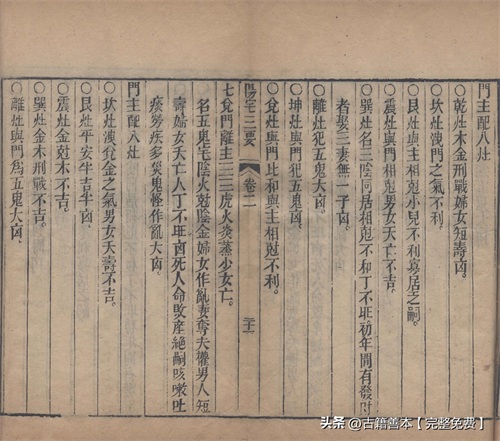 門主配八灶
○乾灶木金刑戰婦女短壽凶。
○坎灶洩門之氣不利。
○艮灶與主相尅小兒不利寡居乏嗣。
○震灶與門相尅男女夭亡不吉。
○巽灶名三陰同居相尅不和丁不旺初年間有發財
者娶三妻無一子凶。
○離灶犯五鬼大凶。
○坤灶犯五鬼凶。
○兌灶與門比和與主相尅不利。
陽宅三要 卷二
七兌門離主 虎火炎蒸少女亡。
名五鬼宅陰火尅陰金婦女作亂妻奪夫權男人短
壽婦女夭亡人丁不旺凶死人命敗産絕嗣咳嗽吐
痰勞疾多災鬼怪作亂大凶。
門主配八灶
○坎灶洩兌金之氣男女夭壽不吉。
○艮灶平安半吉半凶。
○震灶金尅木不吉。
○巽灶金木刑戰不吉。
○離灶與門爲五鬼大凶。
头条 @古籍善本【完整免费】